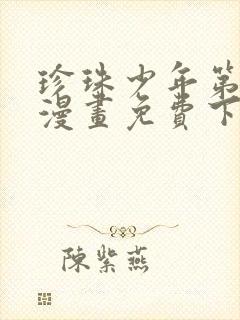 珍珠少年第
漫畫免費下
陳紫燕